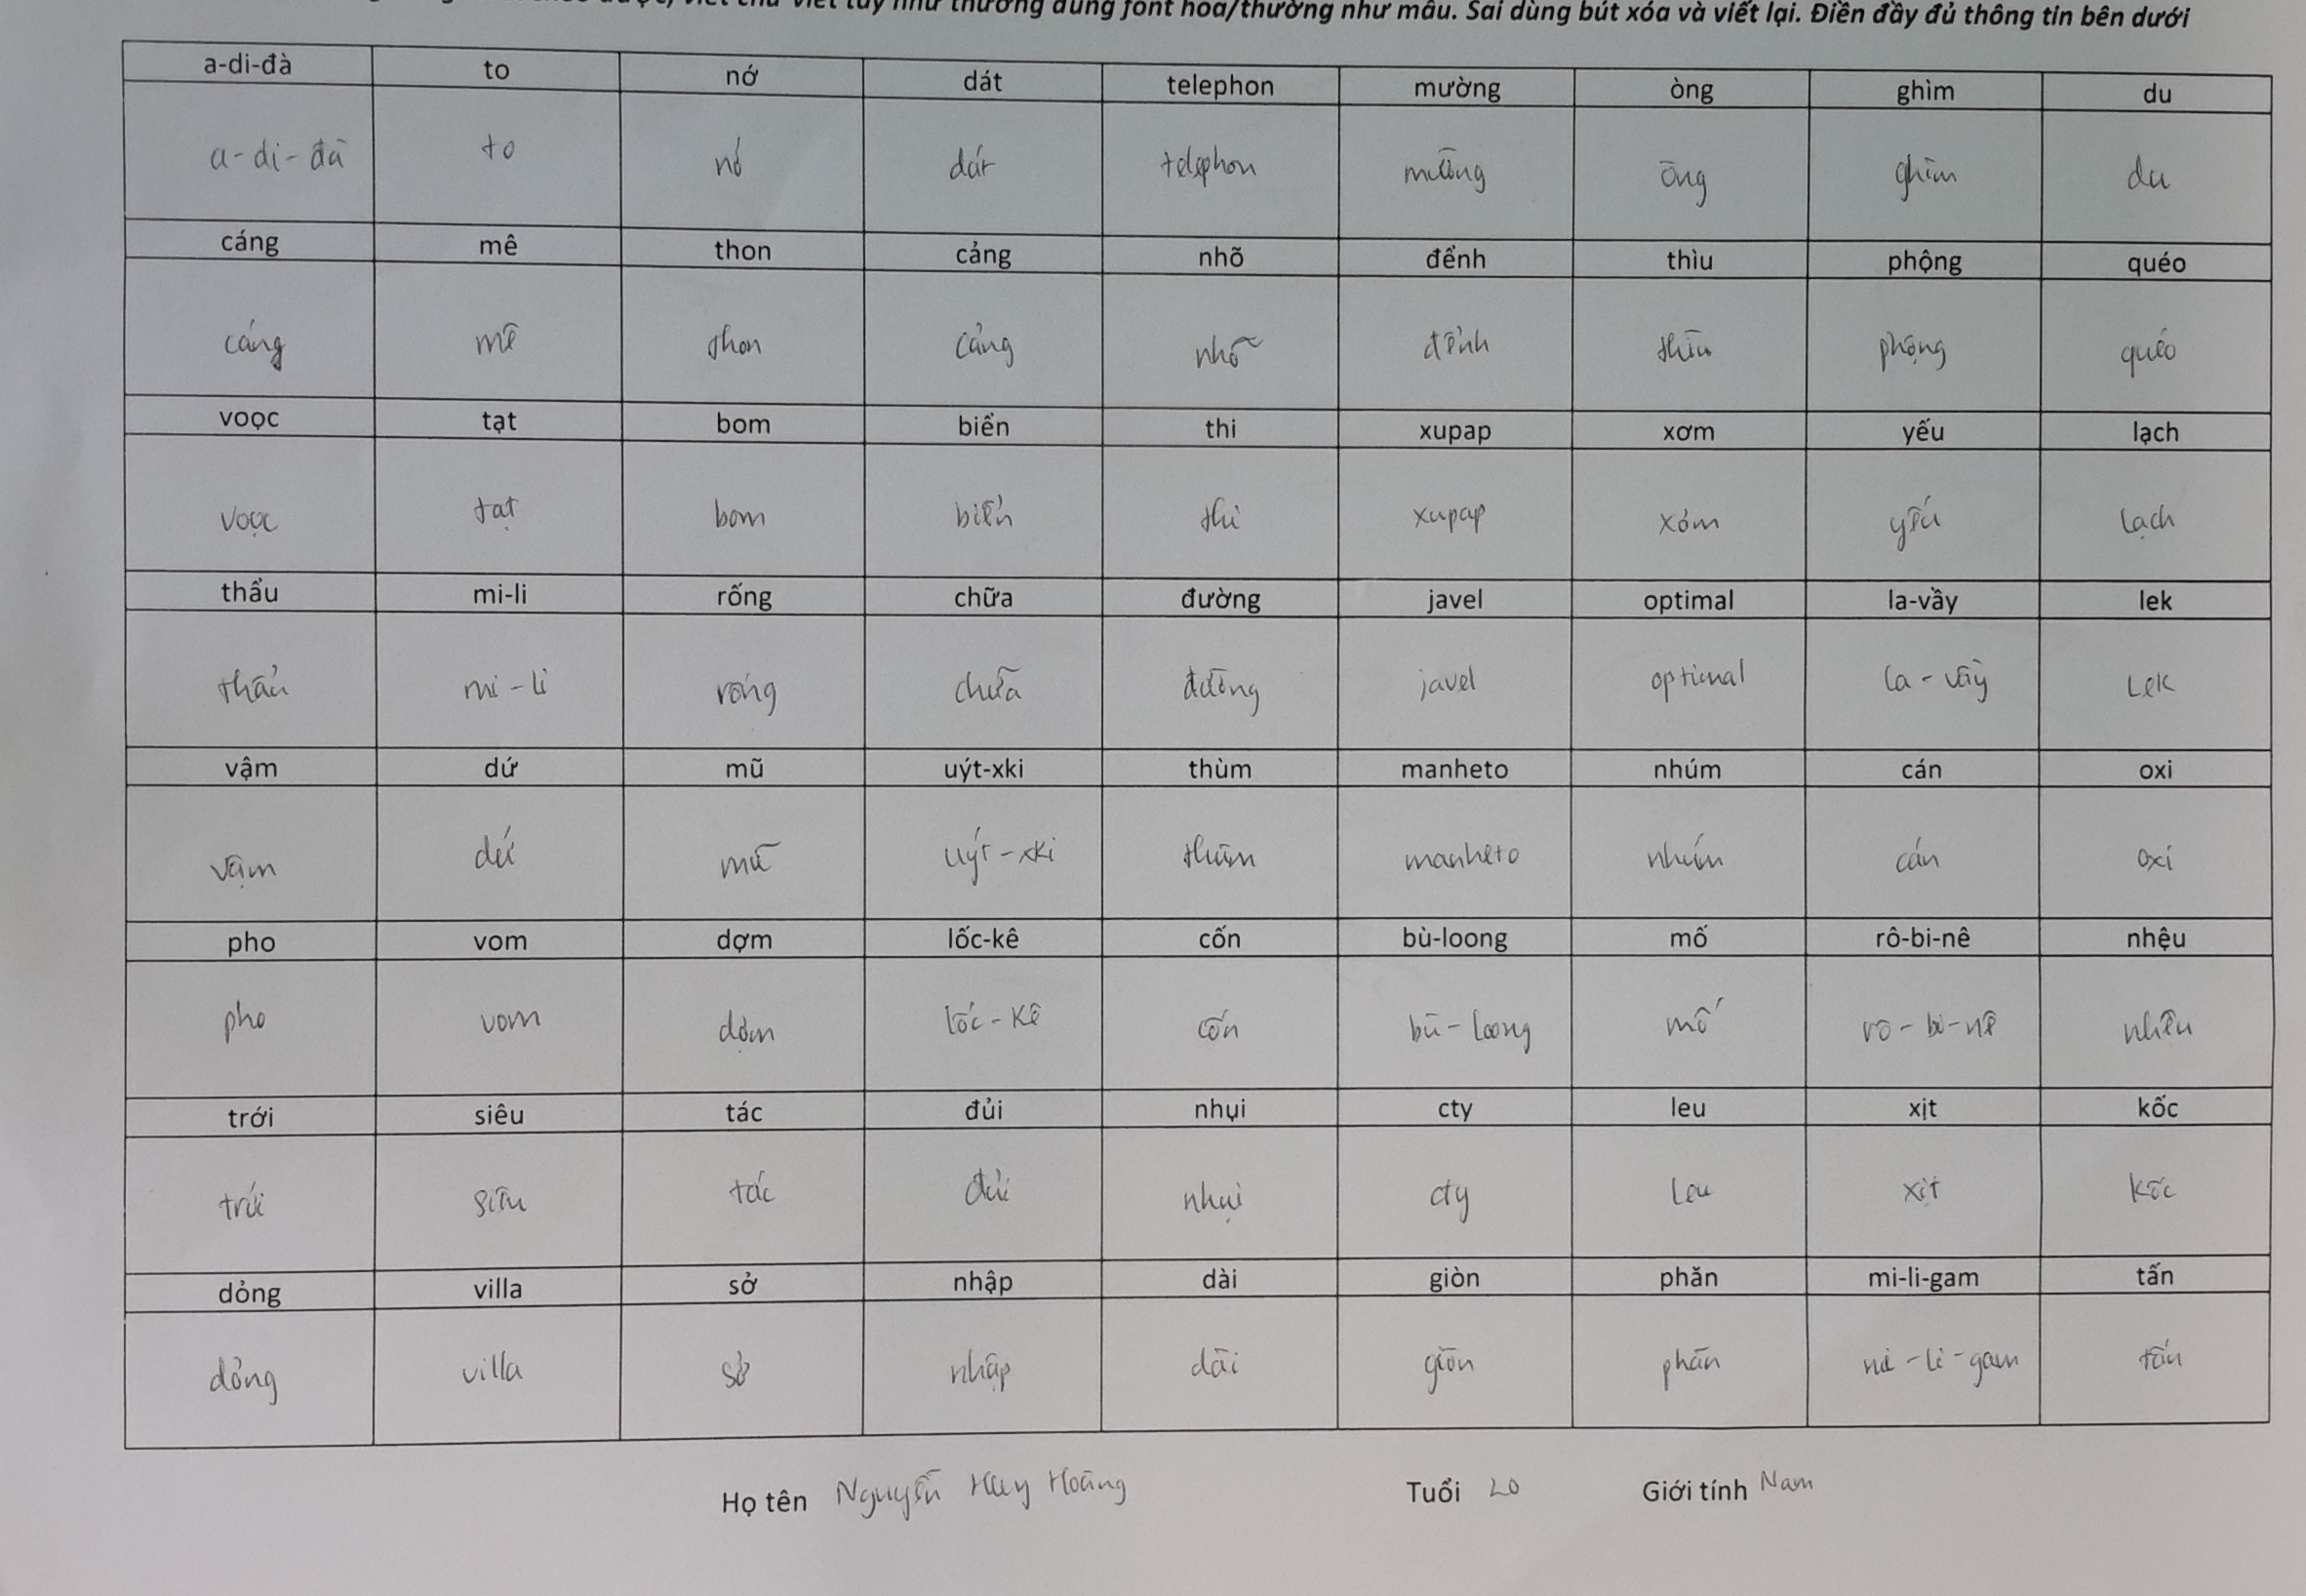 như thường dùng font hoa/thường như mẫu. Sai dùng bút xóa và viết lại. Điền đầy đủ thông tin bên dưới
a-di-đà to nớ dát telephon mường òng ghìm du
a-di-đà to nớ dát telephon mường òng ghìm du
cáng mê thon cảng nhõ đểnh thìu phộng quéo
cáng mê thon cảng nhõ đểnh thìu phộng quéo
voọc tạt bom biển thi xupap xơm yếu lạch
voọc tạt bom biển thi xupap xơm yếu lạch
thẩu mi-li rống chữa đường javel optimal la-vầy lek
thẩu mi-li rống chữa đường javel optimal la-vầy lek
vậm dứ mũ uýt-xki thùm manheto nhúm cán oxi
vậm dứ mũ uýt-xki thùm manheto nhúm cán oxi
pho vom dợm lốc-kê cốn bù-loong mố rô-bi-nê nhệu
pho vom dợm lốc-kê cốn bù-loong mố rô-bi-nê nhệu
trới siêu tác đủi nhụi cty leu xịt kốc
trới siêu tác đủi nhụi cty leu xịt kốc
dỏng villa sở nhập dài giòn phăn mi-li-gam tấn
dỏng villa sở nhập dài giòn phăn mi-li-gam tấn
Họ tên Nguyễn Huy Hoàng Tuổi 20 Giới tính Nam